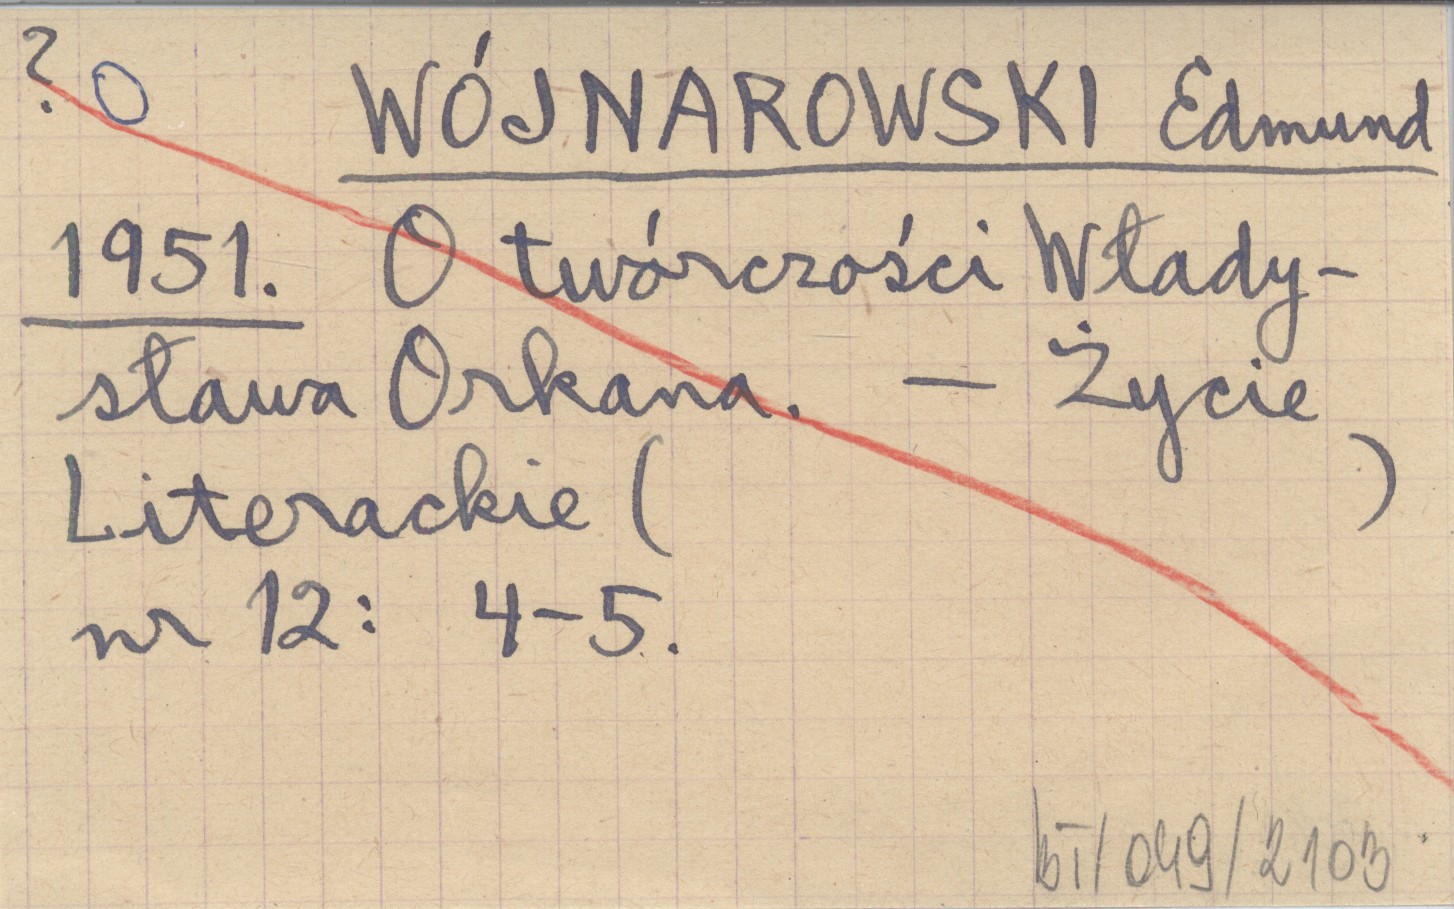 ? O WÓJNAROWSKI Edmund
1951. O twórczości Włady-
sława Orkana. — Życie
Literackie ( )
nr 12: 4-5.
bT/049/2103